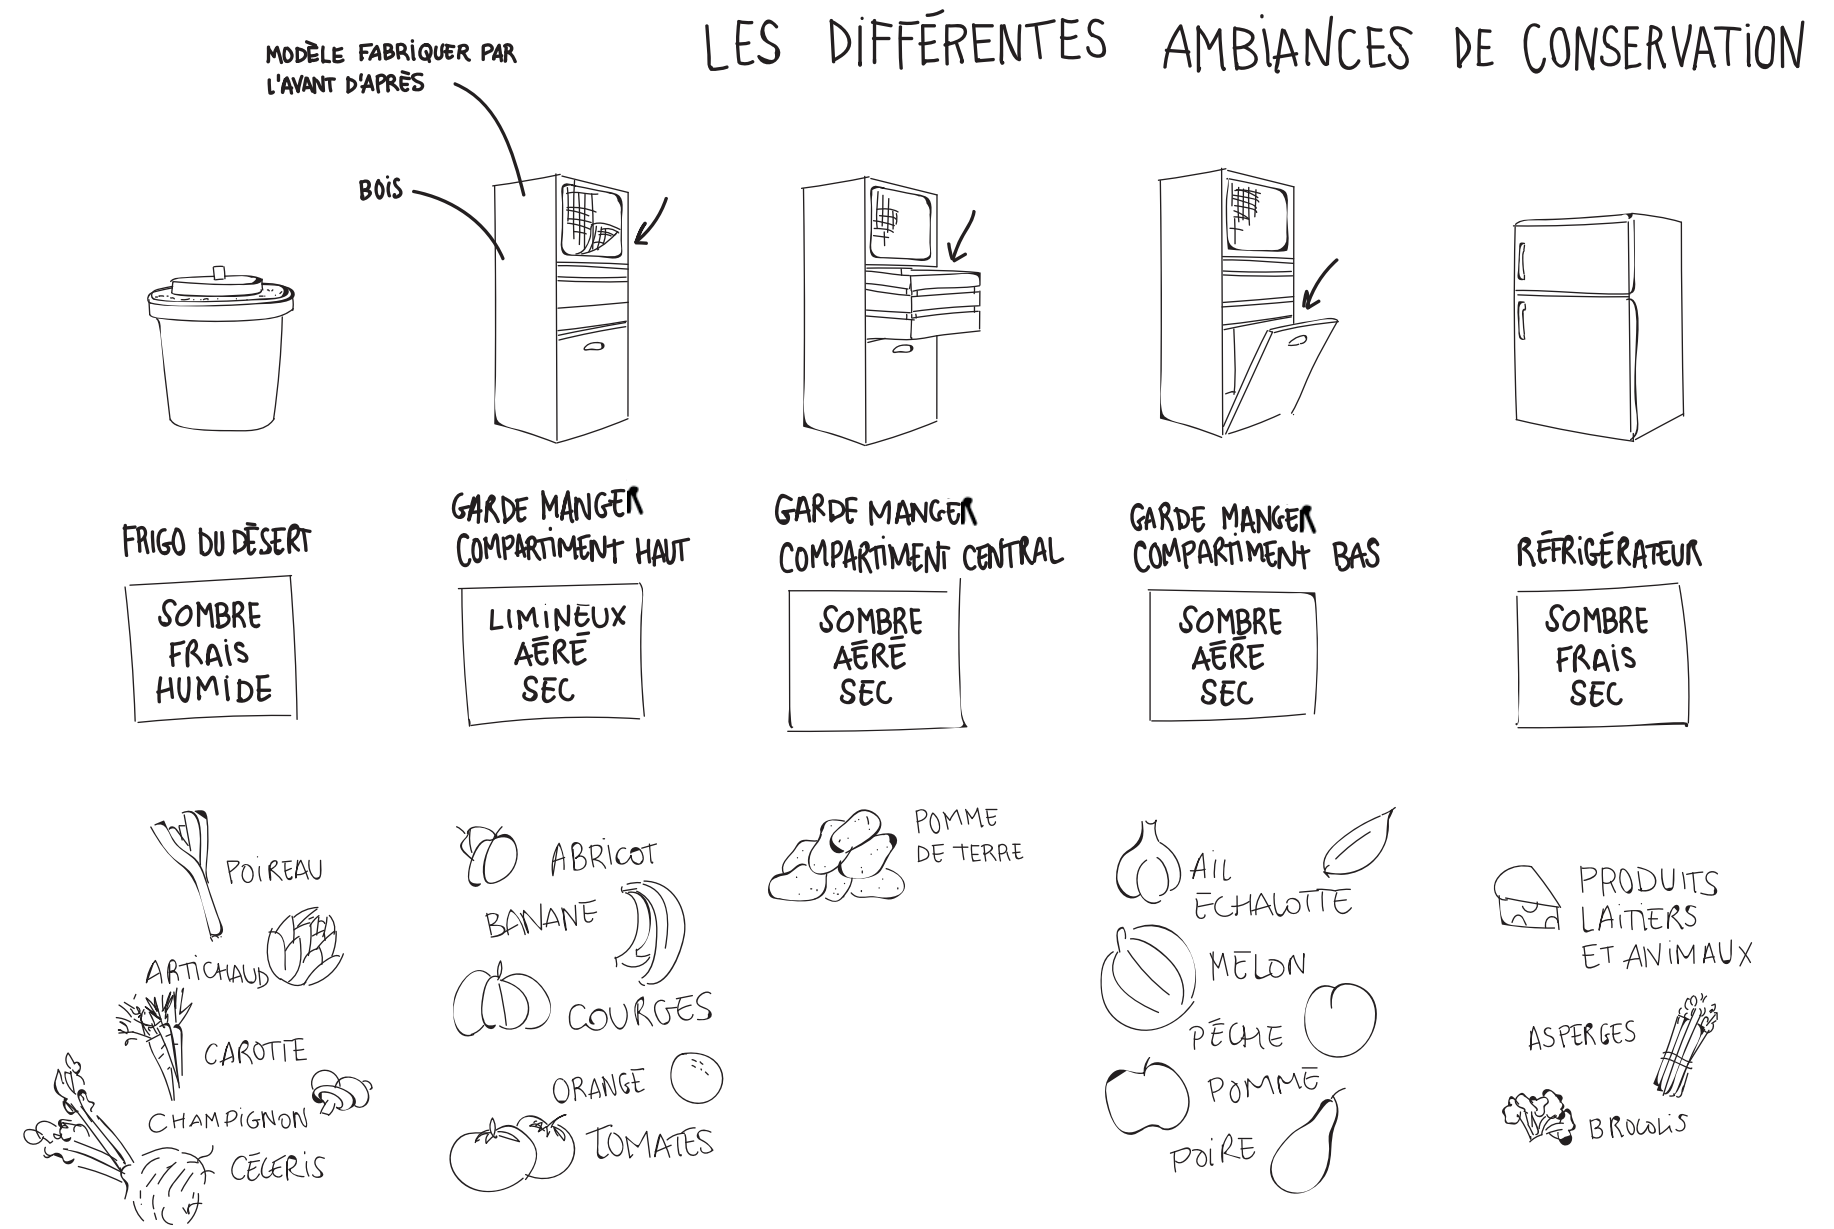 LES DIFFÉRENTES AMBIANCES DE CONSERVATION
MODÈLE FABRIQUER PAR
L'AVANT D'APRÈS
BOIS
FRIGO DU DÉSERT
SOMBRE
FRAIS
HUMIDE
POIREAU
ARTICHAUD
CAROTTE
CHAMPIGNON
CÉLERIS
GARDE MANGER
COMPARTIMENT HAUT
LIMINEUX
AÉRÉ
SEC
ABRICOT
BANANE
COURGES
ORANGE
TOMATES
GARDE MANGER
COMPARTIMENT CENTRAL
SOMBRE
AÉRÉ
SEC
POMME
DE TERRE
GARDE MANGER
COMPARTIMENT BAS
SOMBRE
AÉRÉ
SEC
AIL
ECHALOTTE
MELON
PÉCHE
POMME
POIRE
RÉFRIGÉRATEUR
SOMBRE
FRAIS
SEC
PRODUITS
LAITIERS
ET ANIMAUX
ASPERGES
BROCOLIS